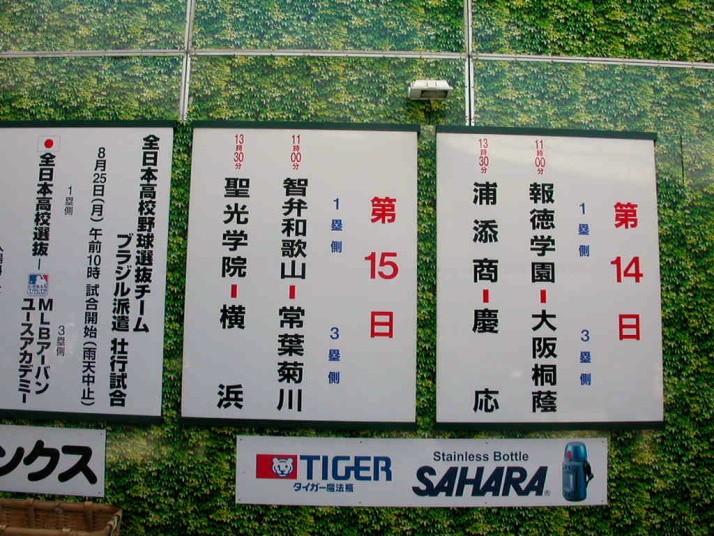 第14日
1塁側 3塁側
11時00分 報徳学園ー大阪桐蔭
13時30分 浦添商ー慶応
第15日
1塁側 3塁側
11時00分 智弁和歌山ー常葉菊川
13時30分 聖光学院ー横浜
全日本高校野球選抜チーム
ブラジル派遣 壮行試合
8月25日(月)午前10時 試合開始(雨天中止)
1塁側 3塁側
全日本高校選抜ー
MLBアーバン
ユースアカデミー
ンクス
TIGER
タイガー魔法瓶
Stainless Bottle
SAHARA®